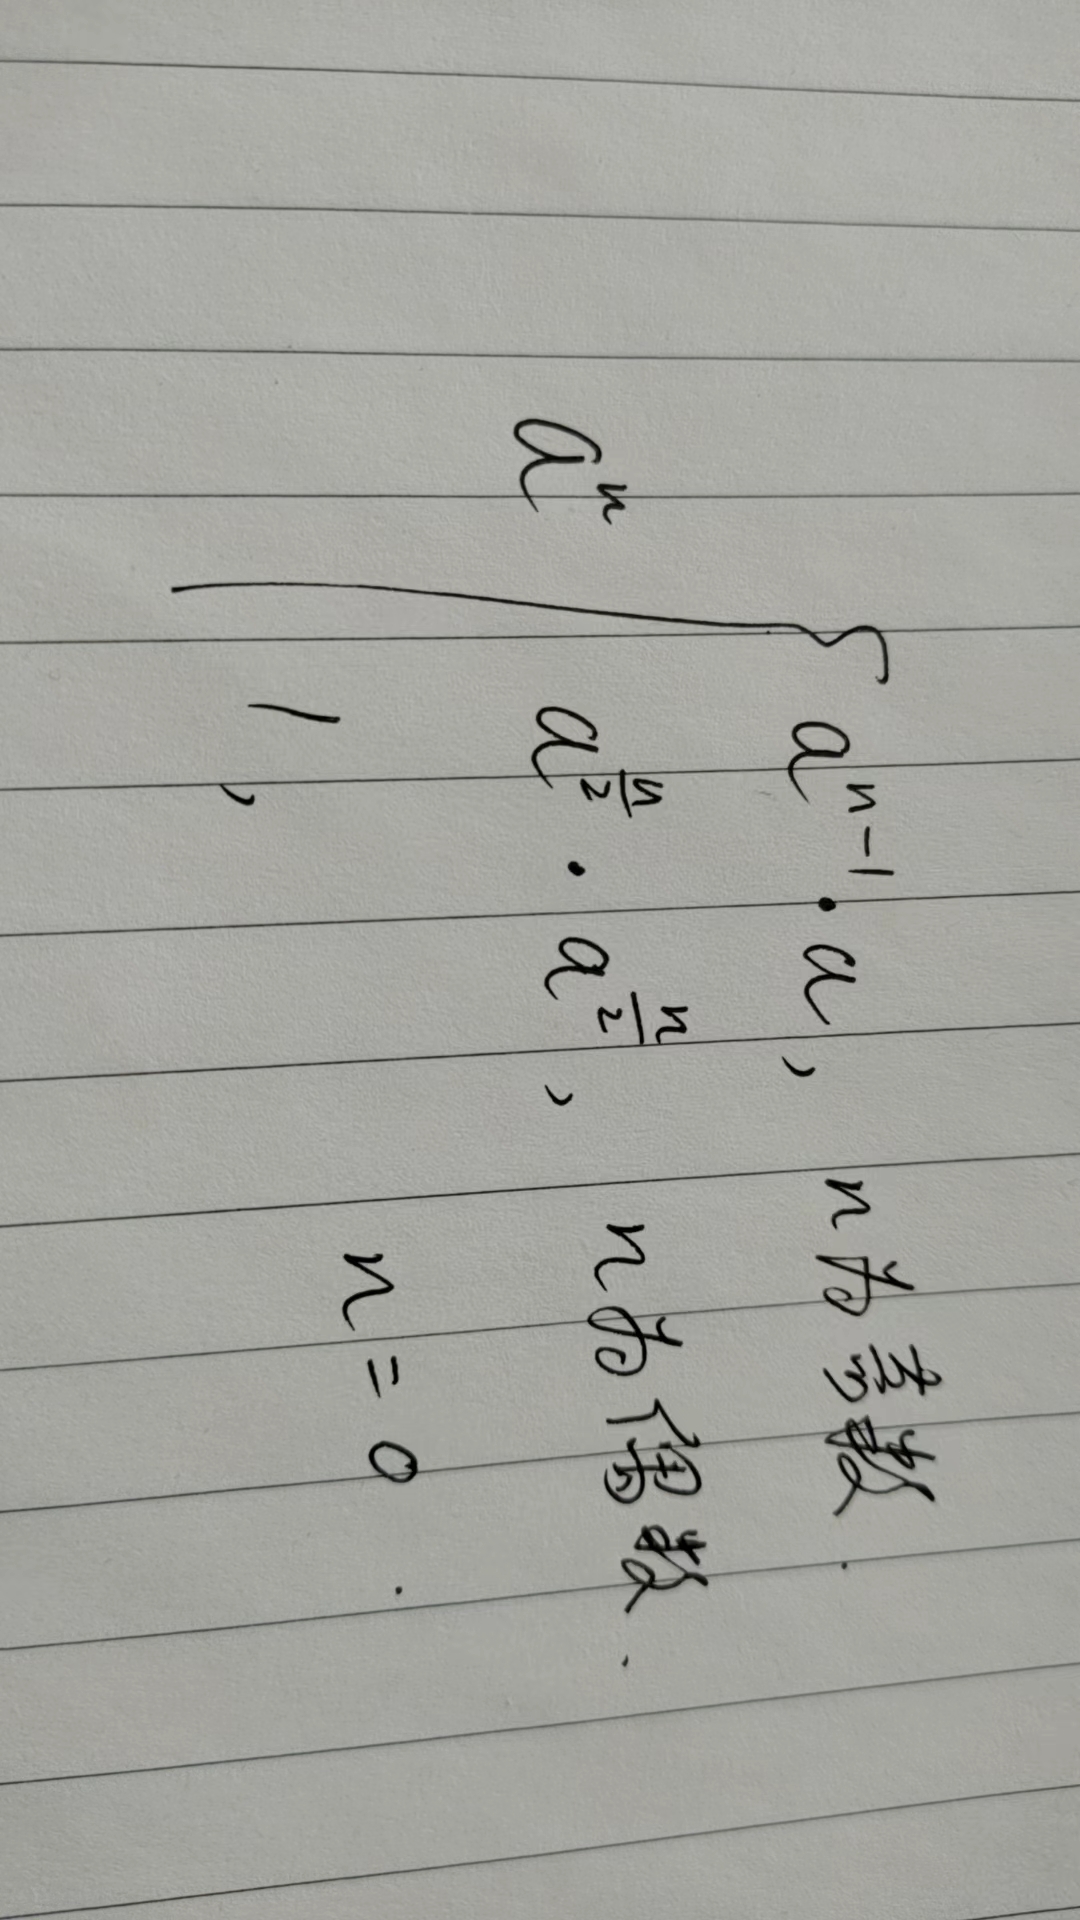 a^{n-1} · a, n为奇数.
a^n { a^{\frac{n}{2}} · a^{\frac{n}{2}}, n为偶数.
1, n = 0.